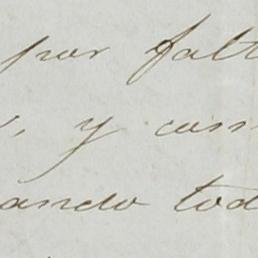 por falt
, y com
ando tod